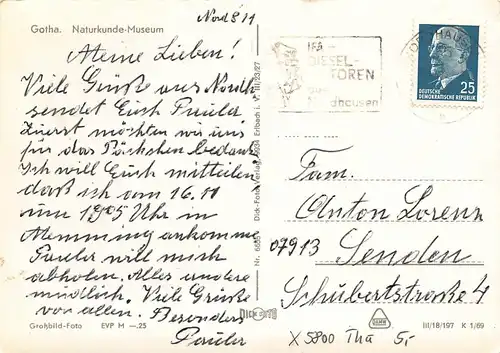 Nord 8 11
Gotha. Naturkunde-Museum
Meine Lieben!
Viele Grüße aus Nordh
sendet Euch Pauler
Zuerst möchten wir uns
für das Päckchen bedank
Ich will Euch mitteilen
daß ich am 16.11
um 1905 Uhr in
Memming ankomme
Pauler will mich
abholen. Alles andere
mündlich. Viele Grüße
von allen. Besonders
Pauler
Großbild-Foto EVP M —.25
Dick-Foto-Verlag, Erlbach i. V. III/23/27
DICK FOTO
IFA-
DIESEL-
MOTOREN
aus
Nordhausen
25
DEUTSCHE
DEMOKRATISCHE REPUBLIK
Fam.
Anton Lorenz
07913 Senden
Schubertstraße 4
III/18/197 K 1/69
X 5800 Tha 5,-